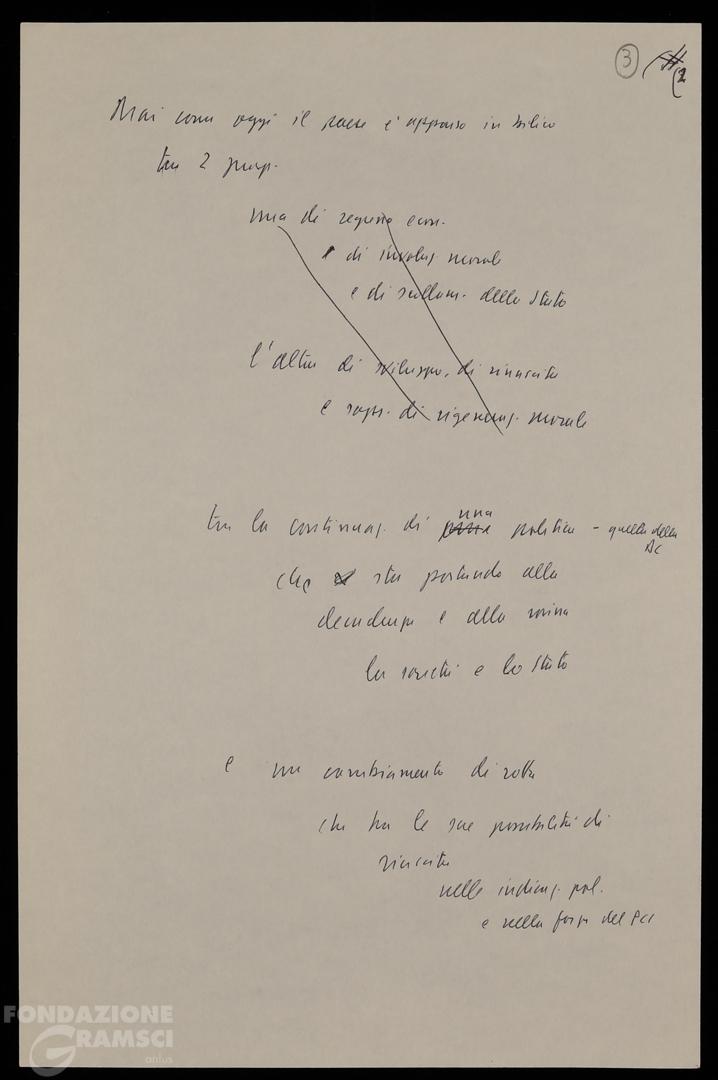 3
2
Mai come oggi il paese è apparso in bilico
tra 2 prosp.
una di regresso econ.
e di involuz. morale
e di sullam. dello Stato
l'altra di sviluppo, di rinascita
e sopr. di rigeneraz. morale
tra la continuaz. di una politica - quella della
DC
che sta portando alla
decadenza e alla rovina
la società e lo Stato
e un cambiamento di rotta
che ha le sue possibilità di
riuscita
nelle indicaz. pol.
e nella forza del PCI
FONDAZIONE
GRAMSCI
onlus